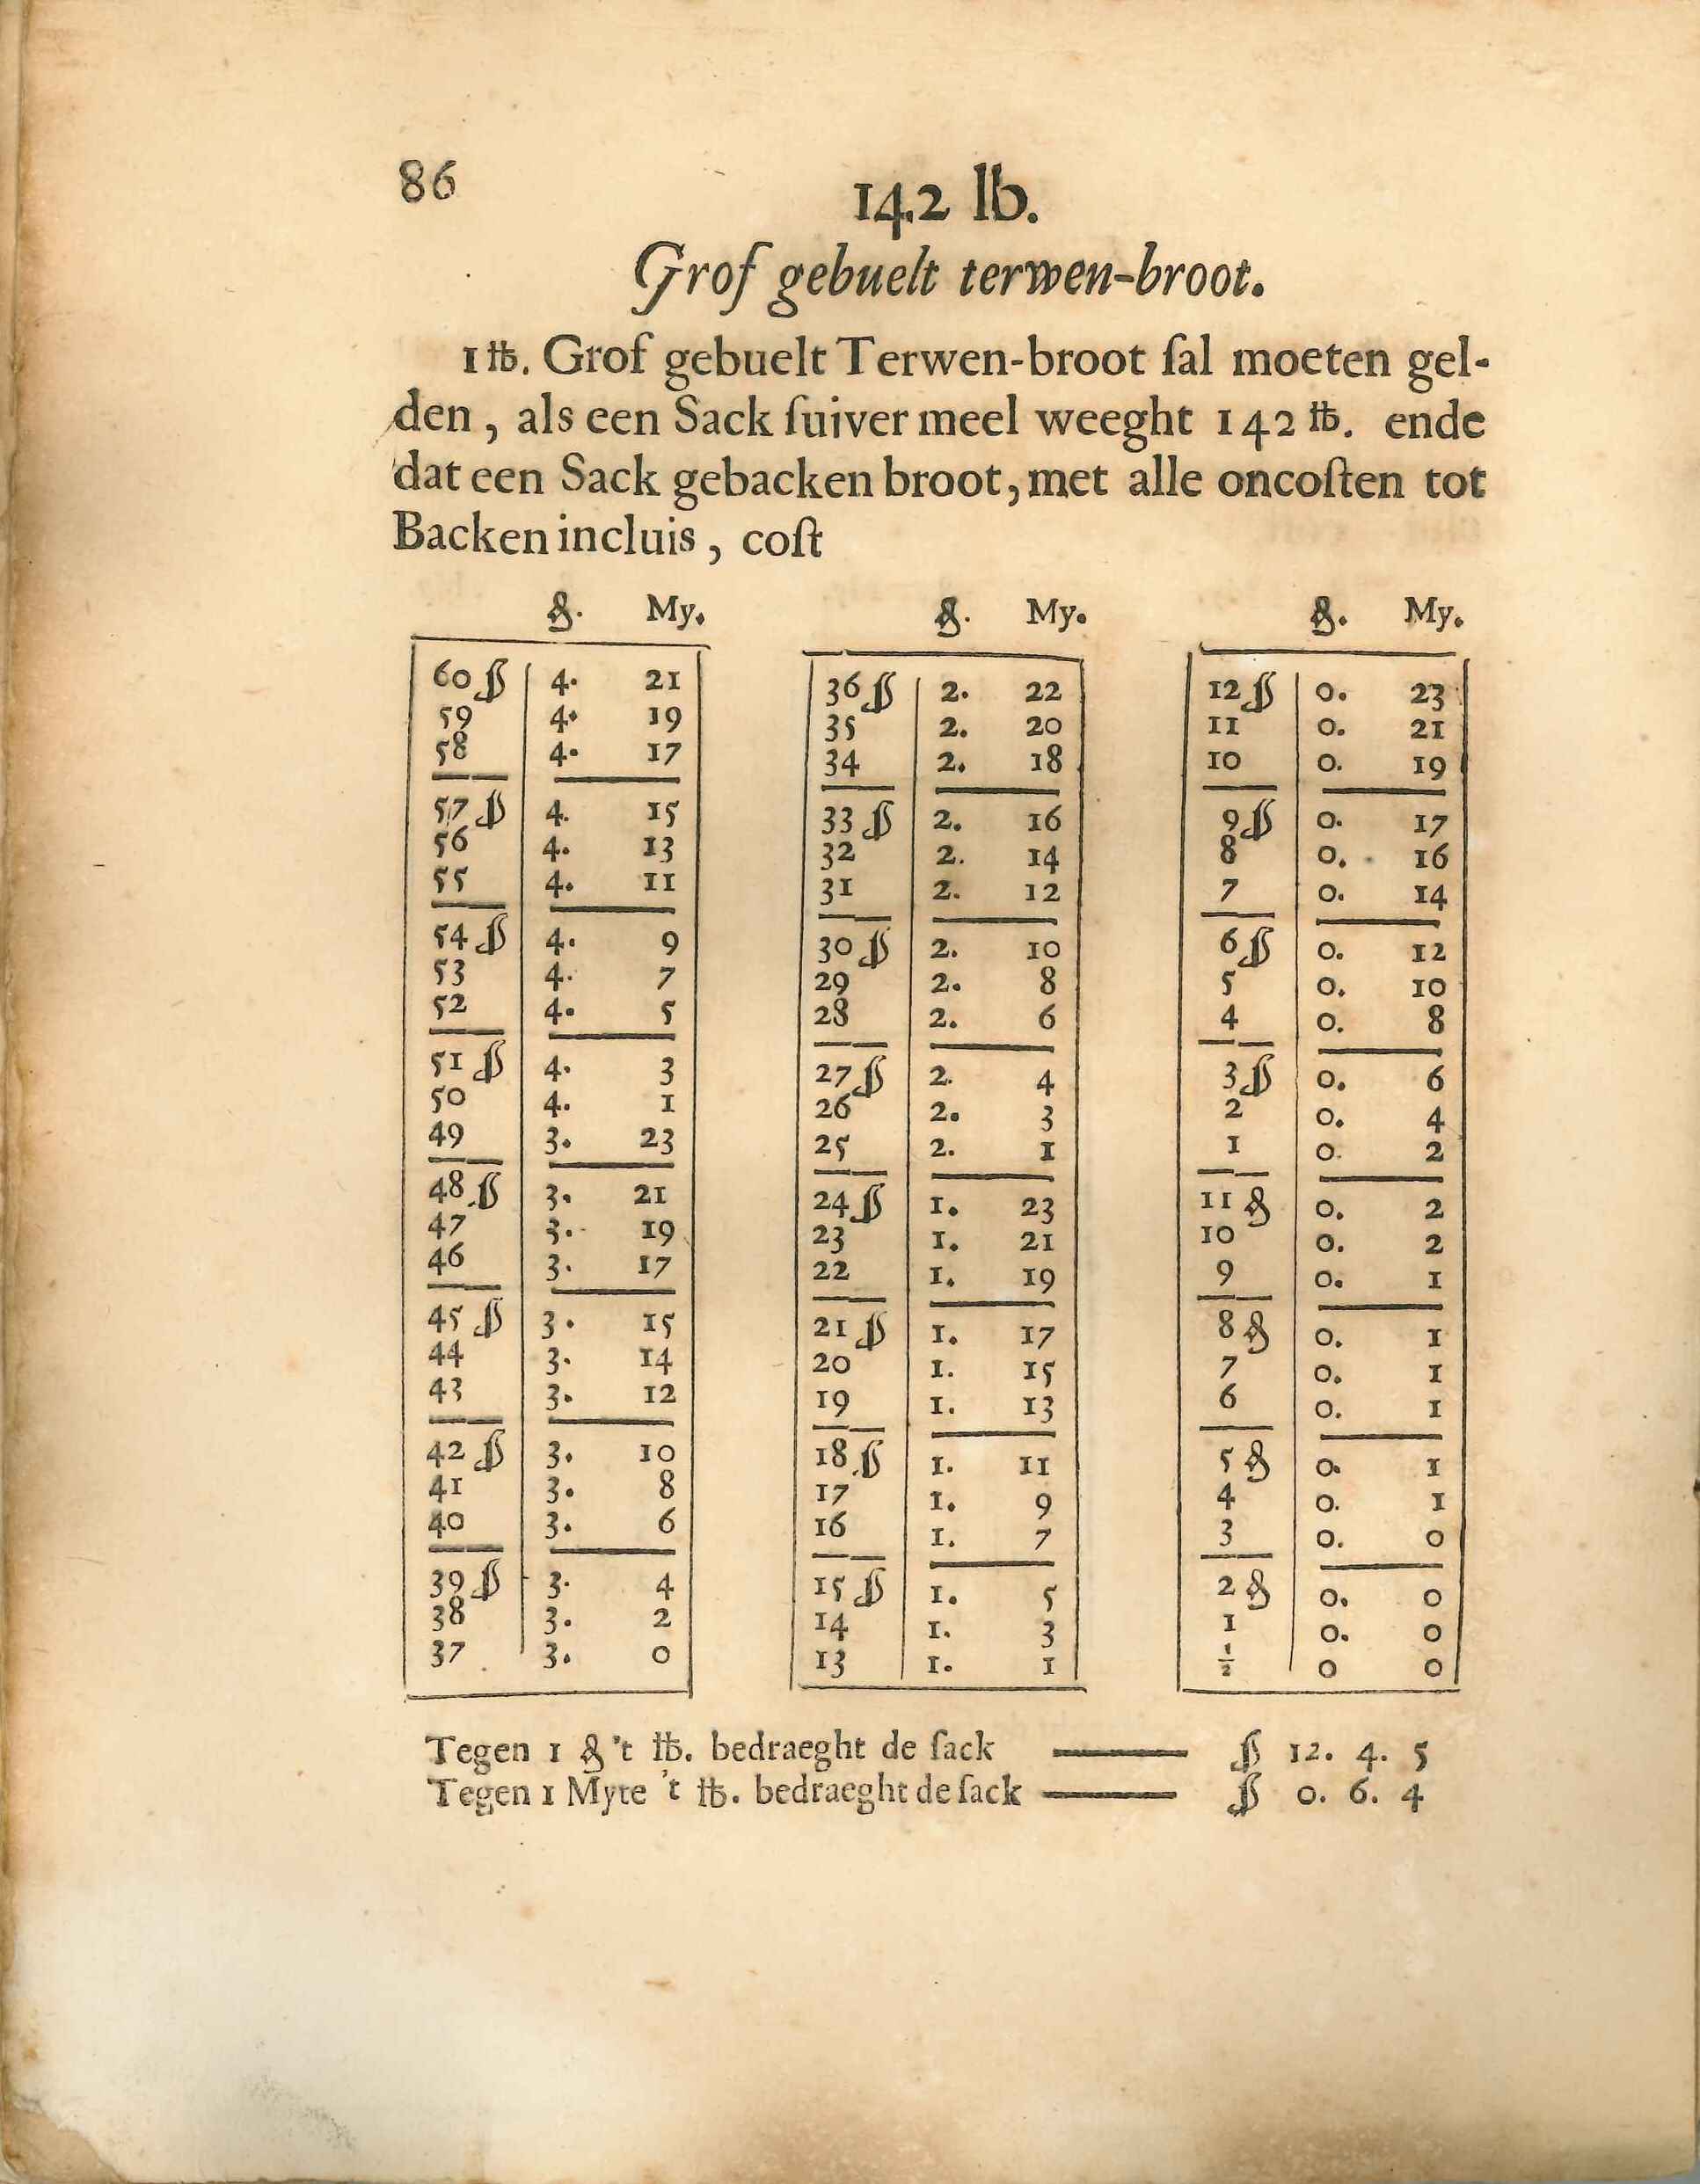 86
142 lb.
Grof gebuelt terwen-broot.
1 ℔. Grof gebuelt Terwen-broot ſal moeten gel-
den, als een Sack ſuiver meel weeght 142 ℔. ende
dat een Sack gebacken broot, met alle oncoſten tot
Backen incluis, coſt
₰. My.
60 ß 4. 21
59 4. 19
58 4. 17
57 ß 4. 15
56 4. 13
55 4. 11
54 ß 4. 9
53 4. 7
52 4. 5
51 ß 4. 3
50 4. 1
49 3. 23
48 ß 3. 21
47 3. 19
46 3. 17
45 ß 3. 15
44 3. 14
43 3. 12
42 ß 3. 10
41 3. 8
40 3. 6
39 ß 3. 4
38 3. 2
37 3. 0
₰. My.
36 ß 2. 22
35 2. 20
34 2. 18
33 ß 2. 16
32 2. 14
31 2. 12
30 ß 2. 10
29 2. 8
28 2. 6
27 ß 2. 4
26 2. 3
25 2. 1
24 ß 1. 23
23 1. 21
22 1. 19
21 ß 1. 17
20 1. 15
19 1. 13
18 ß 1. 11
17 1. 9
16 1. 7
15 ß 1. 5
14 1. 3
13 1. 1
₰. My.
12 ß 0. 23
11 0. 21
10 0. 19
9 ß 0. 17
8 0. 16
7 0. 14
6 ß 0. 12
5 0. 10
4 0. 8
3 ß 0. 6
2 0. 4
1 0. 2
11 ₰ 0. 2
10 0. 2
9 0. 1
8 ₰ 0. 1
7 0. 1
6 0. 1
5 ₰ 0. 1
4 0. 1
3 0. 0
2 ₰ 0. 0
1 0. 0
½ 0 0
Tegen 1 ₰ 't ℔. bedraeght de ſack —— ß 12. 4. 5
Tegen 1 Myte 't ℔. bedraeght de ſack —— ß 0. 6. 4